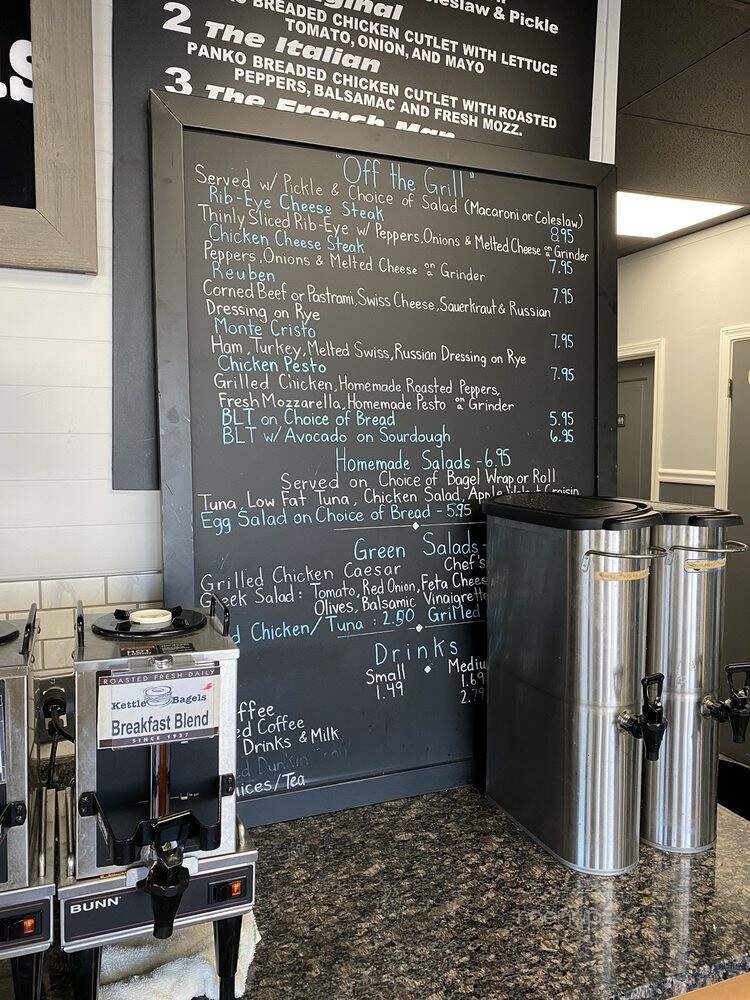 Coleslaw & Pickle
BREADED CHICKEN CUTLET WITH LETTUCE
TOMATO, ONION, AND MAYO
2 The Italian
PANKO BREADED CHICKEN CUTLET WITH ROASTED
PEPPERS, BALSAMAC AND FRESH MOZZ.
3 The French Man
"Off the Grill"
Served w/ Pickle & Choice of Salad (Macaroni or Coleslaw)
Rib-Eye Cheese Steak 8.95
Thinly Sliced Rib-Eye w/ Peppers, Onions & Melted Cheese on Grinder
Chicken Cheese Steak 7.95
Peppers, Onions & Melted Cheese on a Grinder
Reuben 7.95
Corned Beef or Pastrami, Swiss Cheese, Sauerkraut & Russian
Dressing on Rye
Monte Cristo 7.95
Ham, Turkey, Melted Swiss, Russian Dressing on Rye
Chicken Pesto 7.95
Grilled Chicken, Homemade Roasted Peppers,
Fresh Mozzarella, Homemade Pesto on a Grinder
BLT on Choice of Bread 5.95
BLT w/ Avocado on Sourdough 6.95
Homemade Salads - 6.95
Served on Choice of Bagel Wrap or Roll
Tuna, Low Fat Tuna, Chicken Salad, Apple Walnut Craisin
Egg Salad on Choice of Bread - 5.95
Green Salads -
Grilled Chicken Caesar Chef's
Greek Salad: Tomato, Red Onion, Feta Chees
Olives, Balsamic Vinaigrette
d Chicken/Tuna : 2.50 Grilled
Drinks
Small Mediu
1.49 1.69
2.79
ffee
ed Coffee
Drinks & Milk
uices/Tea
ROASTED FRESH DAILY
Kettle Bagels
Breakfast Blend
SINCE 1937
BUNN